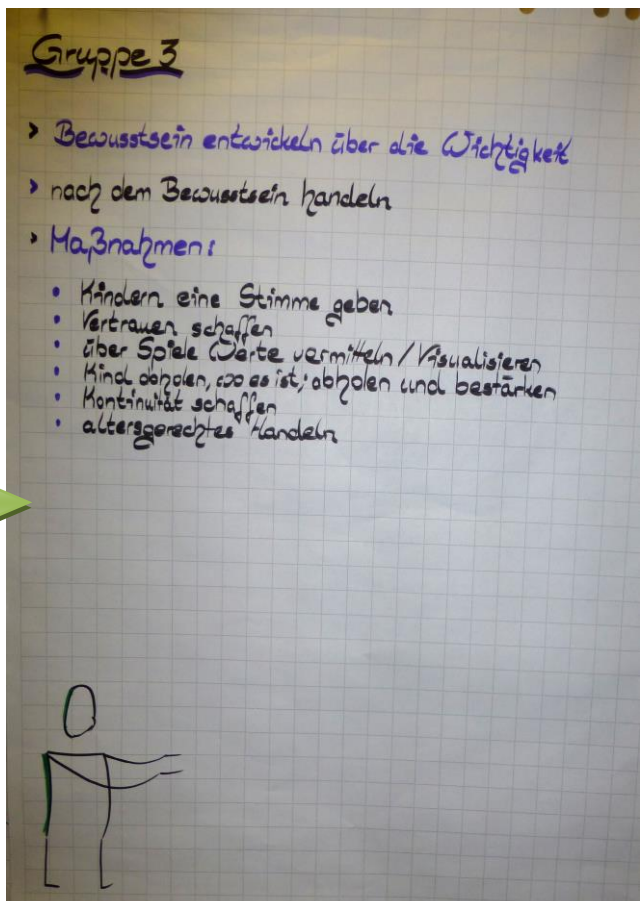 Gruppe 3
> Bewusstsein entwickeln über die Wichtigkeit
> nach dem Bewusstsein handeln
> Maßnahmen:
• Kindern eine Stimme geben
• Vertrauen schaffen
• über Spiele Werte vermitteln / Visualisieren
• Kind abholen, wo es ist; abholen und bestärken
• Kontinuität schaffen
• altersgerechtes Handeln